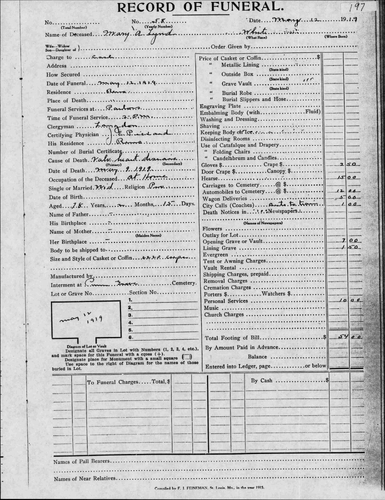 RECORD OF FUNERAL.
197
No. No. 58 Date May 12 1919
(Total Number) (Yearly Number)
Name of Deceased Mary A. Lynd White
(What Race) (Where Born)
Charge to Cash
Order Given by
Address
How Secured
Date of Funeral May 12, 1919
Residence
Place of Death
Funeral Services at Parlors
Time of Funeral Service 2 PM
Clergyman Langdon
Certifying Physician
His Residence
Number of Burial Certificate
Cause of Death Valv. Heart Disease
Date of Death May 9 1919
Occupation of the Deceased At Home
Single or Married Wid Religion
Date of Birth
Aged 78 Years Months 15 Days
Name of Father
His Birthplace
Name of Mother
Her Birthplace
Body to be shipped to
Size and Style of Casket or Coffin
Manufactured by
Interment at Cemetery
Lot or Grave No. Section No.
1.
2.
3.
4.
5.
6.
May 12 1919
Diagram of Lot or Vault
Designate all Graves in Lot with Numbers (1, 2, 3, 4, etc.), and mark space for this Funeral with a cross (+).
Designate place for Monument with a small square
Use space in the right of Diagram for the names of those buried in Lot.
Price of Casket or Coffin $
Metallic Lining
(State kind)
" Outside Box
(State kind)
" Grave Vault
(State kind)
" Burial Robe
" Burial Slippers and Hose
Engraving Plate
Embalming Body (with Fluid)
Washing and Dressing
Shaving
Keeping Body on Ice
Disinfecting Rooms
Use of Catafalque and Drapery
" Folding Chairs
" Candelabrum and Candles
Gloves $ Crape $ 2 50
Door Crape $ Canopy $
Hearse 15 00
Carriages to Cemetery @ $
Automobiles to Cemetery @ $ 12 00
Wagon Deliveries 5 00
City Calls (Coaches) 1 00
Death Notices in Newspapers
(Names of Newspapers)
Flowers
Outlay for Lot
Opening Grave or Vault 7 00
Lining Grave 1 50
Evergreen
Tent or Awning Charges
Vault Rental
Shipping Charges, prepaid
Removal Charges
Cremation Charges
Porters $ Watchers $
Personal Services 10 00
Music
Church Charges
Total Footing of Bill $ 54 00
By Amount Paid in Advance
Balance
Entered into Ledger, page or below
To Funeral Charges $
By Cash $
Names of Pall Bearers
Names of Near Relatives
Compiled by F. J. FEINEMAN, St. Louis, Mo., in the year 1912.